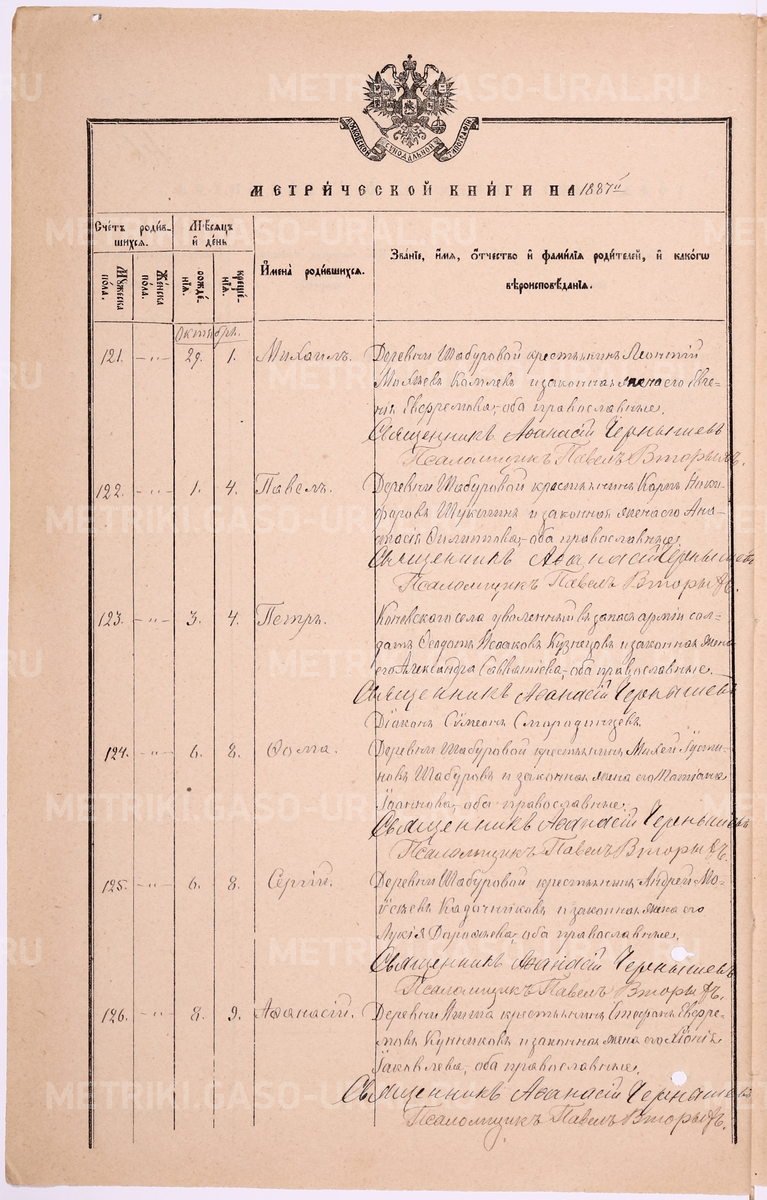 МЕТРИЧЕСКОЙ КНИГИ НА 1887
Счетъ родившихся.
Мѣсяцъ и день
Имена родившихся.
Званіе, имя, отчество и фамилія родителей, и какого вѣроисповѣданія.
Мужеска пола.
Женска пола.
рожденія.
крещенія.
Октябрь.
121. — " — 29. 1. Михаилъ. Деревни Шабуровой крестьянинъ Леонтій
законная жена его Евге-
нія Евфремова, оба православные.
Священникъ Аѳанасій Чернышевъ
Псаломщикъ Павелъ Вторыхъ.
122. — " — 1. 4. Павелъ. Деревни Шабуровой крестьянинъ Карпъ Ники-
форовъ и законная жена его Ана-
стасія Филиппова, оба православные.
Священникъ Аѳанасій Чернышевъ
Псаломщикъ Павелъ Вторыхъ.
123. — " — 3. 4. Петръ. Коневскаго села уволенный въ запасъ арміи сол-
датъ Ѳедотъ Исааковъ Кузнецовъ и законная жена
его Александра Савватіева, оба православные.
Священникъ Аѳанасій Чернышевъ
Діаконъ Сѵмеонъ Смородинцевъ
124. — " — 6. 8. Ѳома. Деревни Шабуровой крестьянинъ Михей Іусти-
новъ Шабуровъ и законная жена его Татіана
Іоаннова, оба православные.
Священникъ Аѳанасій Чернышевъ
Псаломщикъ Павелъ Вторыхъ.
125. — " — 6. 8. Сергій. Деревни Шабуровой крестьянинъ Андрей Мо-
исеевъ Кадочниковъ и законная жена его
Лукія Дороѳеева, оба православные.
Священникъ Аѳанасій Чернышевъ
Псаломщикъ Павелъ Вторыхъ.
126. — " — 8. 9. Аѳанасій. Деревни крестьянинъ Стефанъ Евфре-
мовъ и законная жена его Хіонія
Іаковлева, оба православные.
Священникъ Аѳанасій Чернышевъ
Псаломщикъ Павелъ Вторыхъ.
METRIKI.GASO-URAL.RU